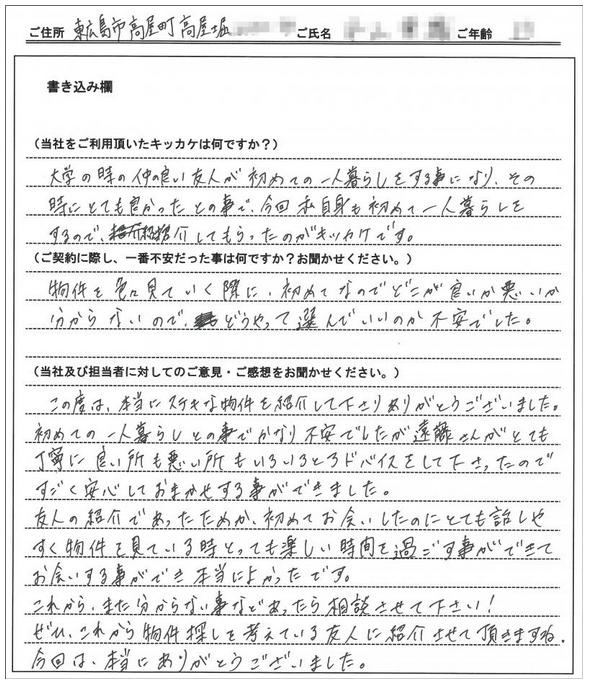 ご住所 東広島市高屋町高屋堀 ご氏名 ご年齢
書き込み欄
(当社をご利用頂いたキッカケは何ですか?)
大学の時の仲の良い友人が初めての一人暮らしをする事になり、その
時にとても良かったとの事で、今回私自身も初めて一人暮らしを
するので、紹介してもらったのがキッカケです。
(ご契約に際し、一番不安だった事は何ですか?お聞かせください。)
物件を色々見ていく際に、初めてなのでどこが良いか悪いか
分からないので、どうやって選んでいいのか不安でした。
(当社及び担当者に対してのご意見・ご感想をお聞かせください。)
この度は、本当にステキな物件を紹介して下さりありがとうございました。
初めての一人暮らしとの事でかなり不安でしたが遠藤さんがとても
丁寧に良い所も悪い所もいろいろとアドバイスをして下さったので
すごく安心しておまかせする事ができました。
友人の紹介であったためか、初めてお会いしたのにとても話しや
すく物件を見ている時とっても楽しい時間を過ごす事ができて
お会いする事ができ本当によかったです。
これから、また分からない事などあったら相談させて下さい!
ぜひ、これから物件探しを考えている友人に紹介させて頂きますね。
今回は、本当にありがとうございました。